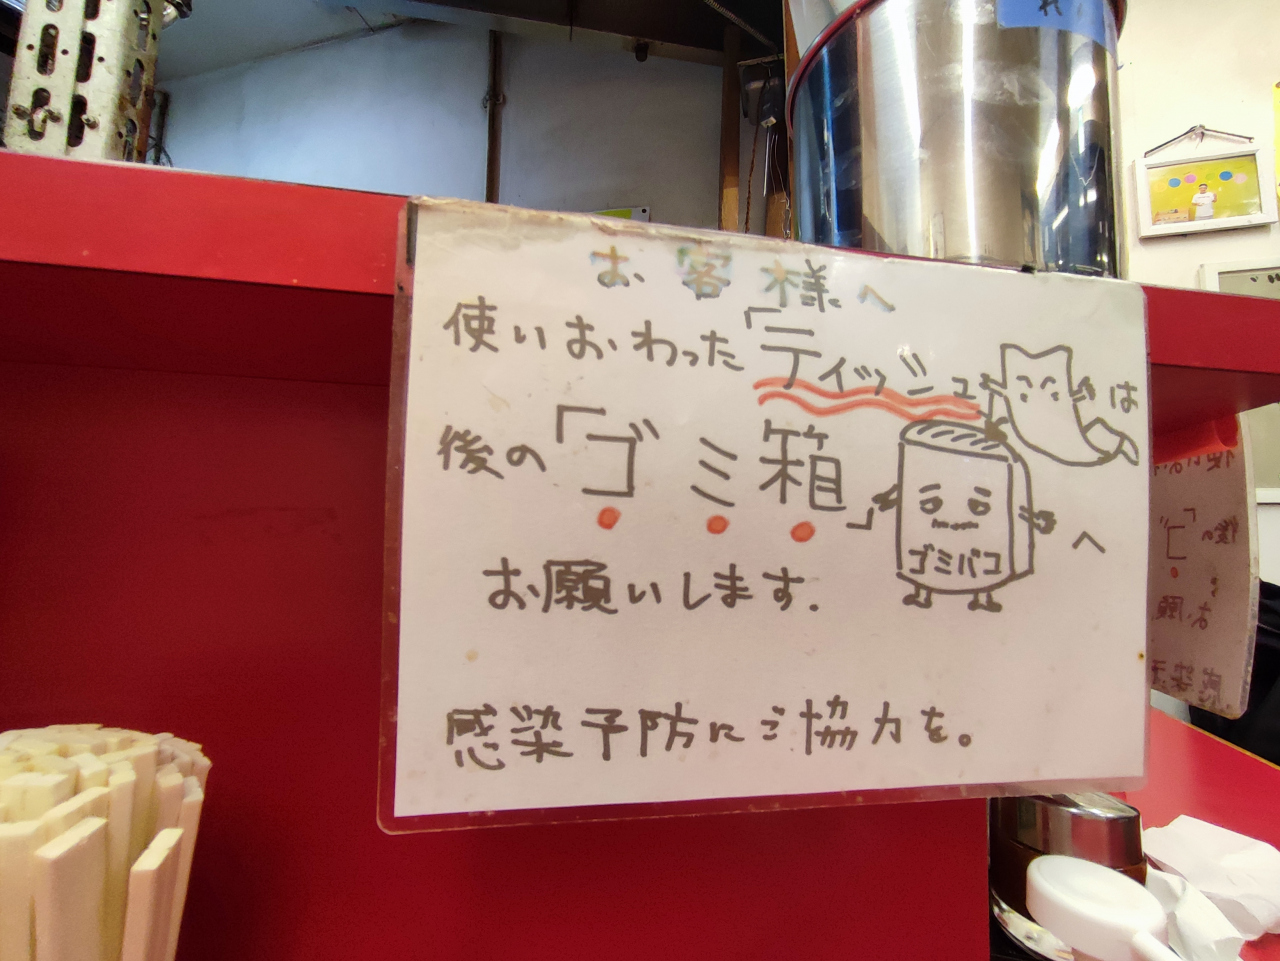 お客様へ
使いおわった「ティッシュは
後の「ゴミ箱」へ
ゴミバコ
お願いします.
感染予防にご協力を。